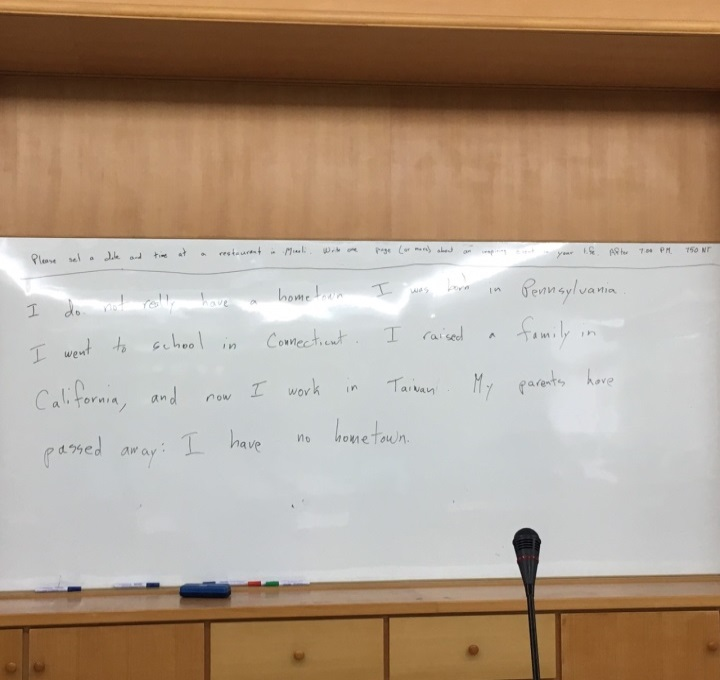 Please set a date and time at a restaurant in Miaoli. Write one page (or more) about an inspiring in your life After 7:00 PM. 750 NT
I do not really have a hometown I was born in Pennsylvania.
I went to school in Connecticut. I raised a family in
California, and now I work in Taiwan. My parents have
passed away: I have no hometown.